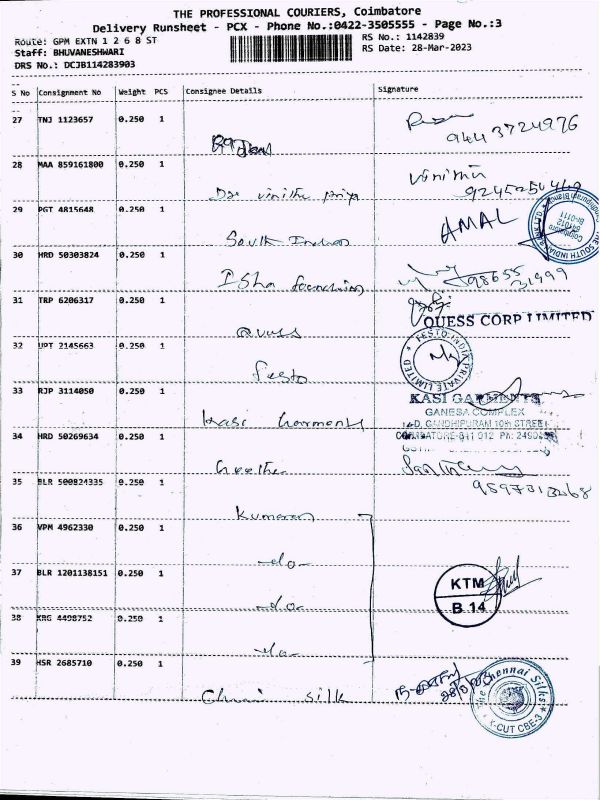 THE PROFESSIONAL COURIERS, Coimbatore
Delivery Runsheet - PCX - Phone No.:0422-3505555 - Page No.:3
Route: GPM EXTN 1 2 6 8 ST
RS No.: 1142839
Staff: BHUVANESHWARI
RS Date: 28-Mar-2023
DRS No.: DCJB114283903
S No Consignment No Weight PCS Consignee Details Signature
27 TNJ 1123657 0.250 1
9443724976
28 MAA 859161800 0.250 1
vinitha priya
29 PGT 4815648 0.250 1
AMAL
South Indian
30 HRD 50303824 0.250 1
Isha foundation
98655
31999
31 TRP 6206317 0.250 1
QUESS CORP LIMITED
Quess
32 UPT 2145663 0.250 1
FESTO INDIA PRIVATE LIMITED
Festo
33 RJP 3114050 0.250 1
KASI GARMENTS
GANESA COMPLEX
Kasi Garments
GANDHIPURAM 10th STREET
34 HRD 50269634 0.250 1
Geetha
35 BLR 500824335 0.250 1
Kumaran
36 VPM 4962330 0.250 1
-do-
37 BLR 1201138151 0.250 1
KTM
B 14
-do-
38 KRG 4498752 0.250 1
-do-
39 HSR 2685710 0.250 1
The Chennai Silks
K-CUT CBE-3
Chennai silk